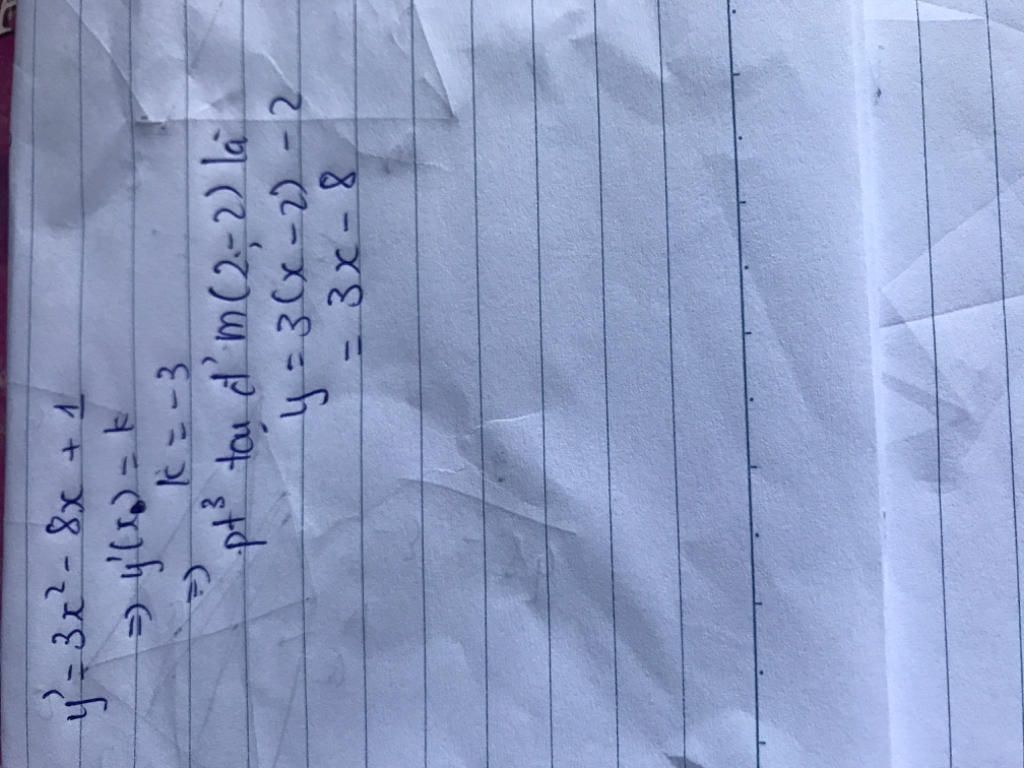 y' = 3x² - 8x + 1
=> y'(x₀) = k
k = -3
=> pt³ tại đ' m(2,-2) là
y = 3(x-2) - 2
= 3x - 8